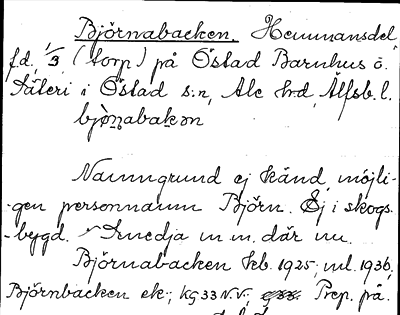 Björnabacken. Hemmansdel
f.d. 1/3 (torp) på Östad Barnhus o.
Säteri i Östad s:n, Ale hrd, Älfsb. l.
björnabakən
Namngrund ej känd, möjli-
-gen personnamn Björn. Ej i skogs-
-bygd. Smedja m.m. där nu.
Björnabacken hb. 1925; ml. 1936.
Björnbacken ek.; KG 33 N.V.; Prep. på.